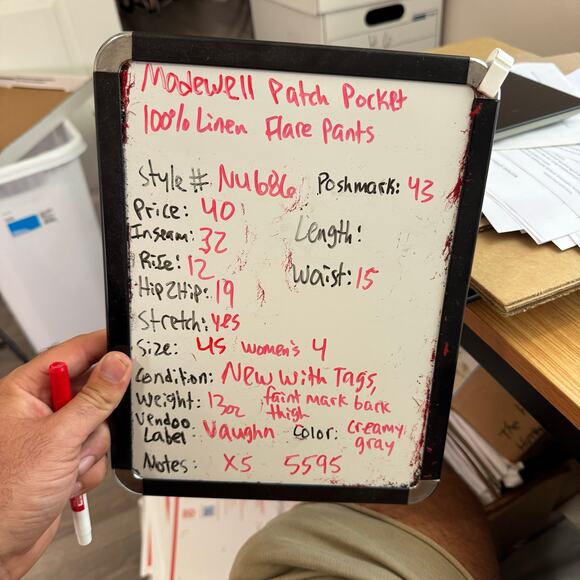 Madewell Patch Pocket
100% Linen Flare Pants
Style #: NU686 Poshmark: 43
Price: 40
Inseam: 32 Length:
Rise: 12 Waist: 15
Hip2Hip: 19
Stretch: yes
Size: 45 women's 4
Condition: New with Tags,
faint mark back
thigh
Weight: 13oz
Vendoo
Label Vaughn Color: creamy
gray
Notes: X5 5595